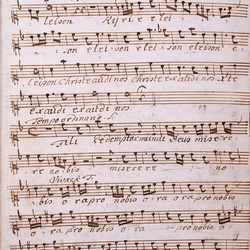 leison Kyrie elei
son elei son elei son eleison e
leison Christe audi nos Christe exaudi nos Xte
exaudi exaudi nos
Tempo ordinario
Fili Redemptor mundi Deus misere
re nobis miserere no
Vivace
bis ora pro nobis ora ora pro nobis
ora pro nobis ora pro nobis o